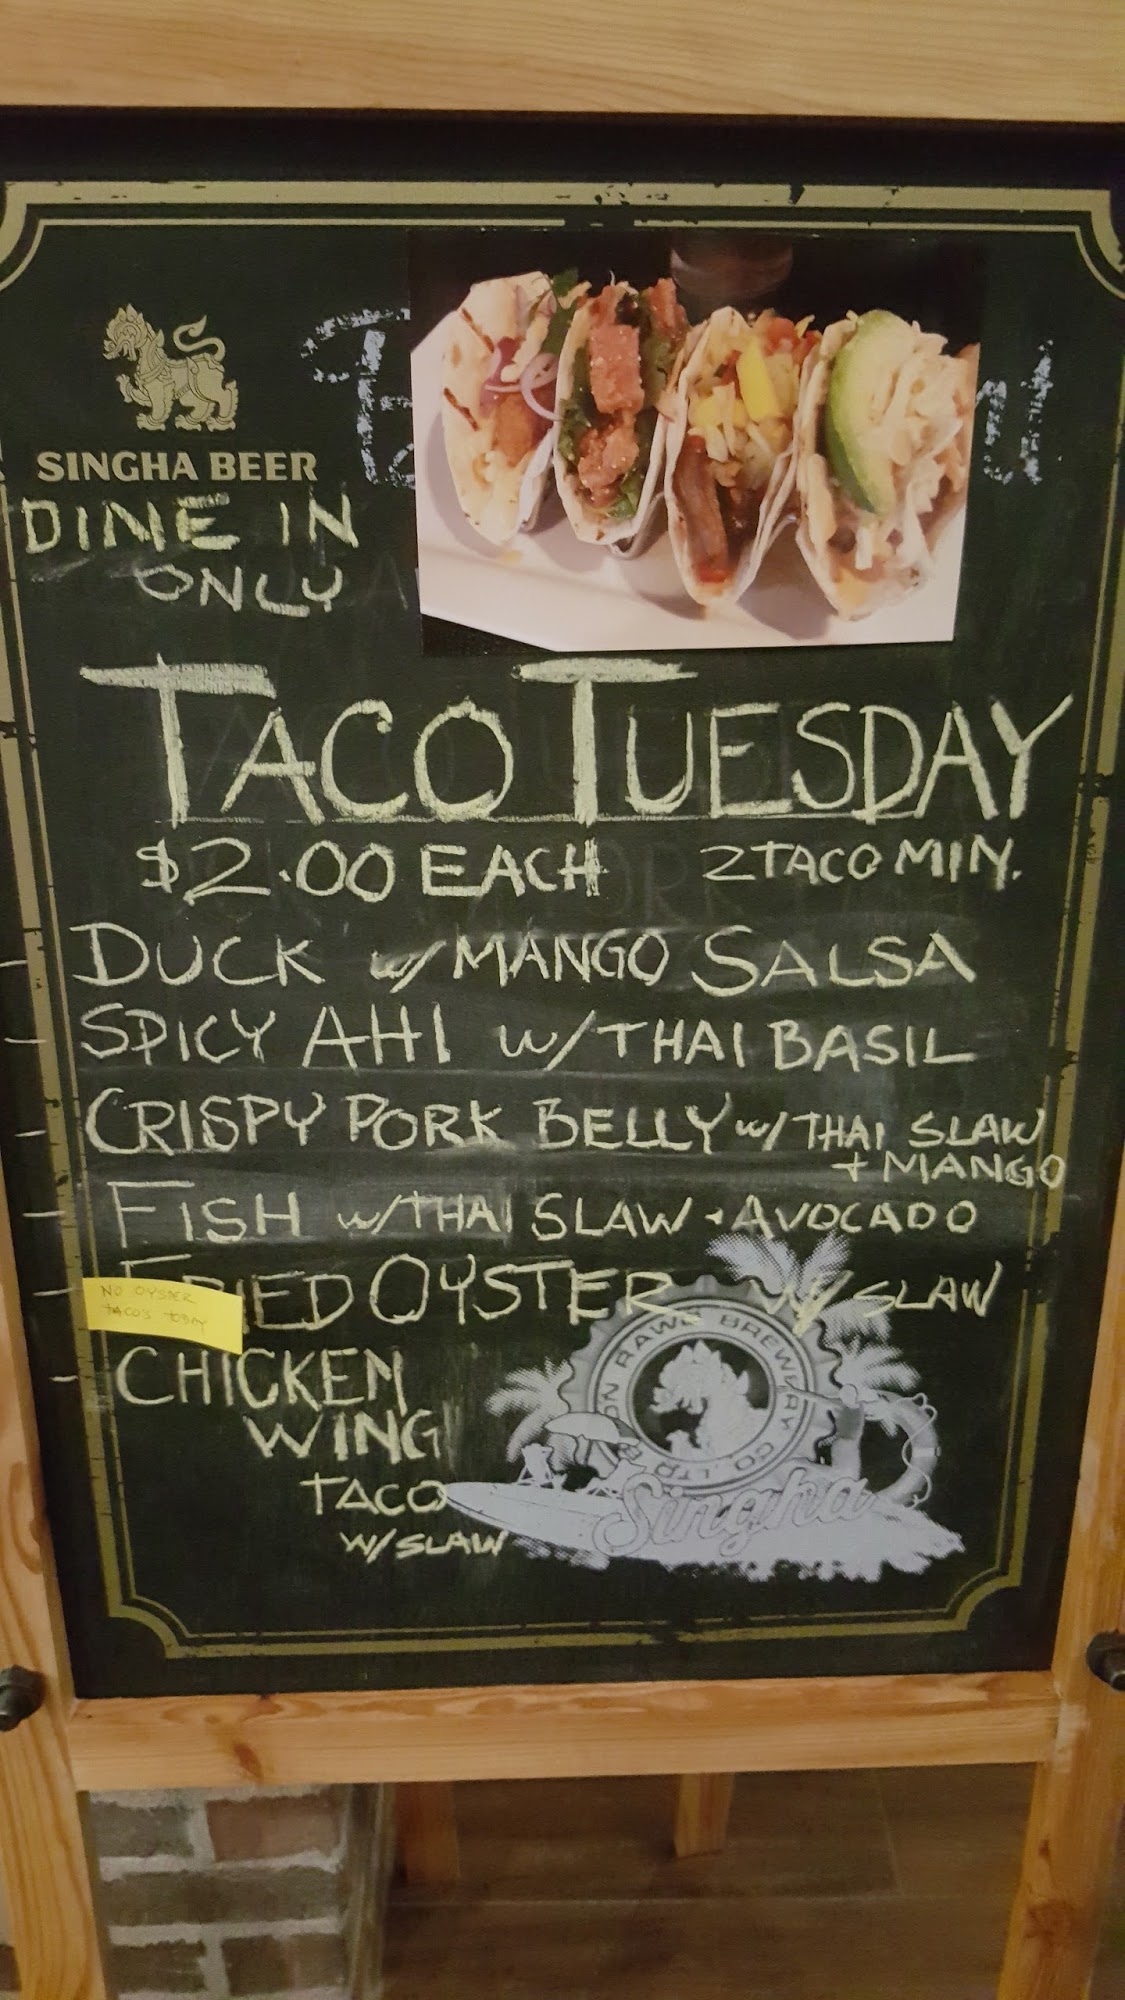 SINGHA BEER
DINE IN
ONLY
TACO TUESDAY
$2.00 EACH 2 TACO MIN.
DUCK w/ MANGO SALSA
SPICY AHI w/ THAI BASIL
CRISPY PORK BELLY w/ THAI SLAW
+ MANGO
FISH w/ THAI SLAW + AVOCADO
FRIED OYSTER w/ SLAW
NO OYSTER
TACOS TODAY
CHICKEN
WING
TACO
W/ SLAW
BREWERY CO., LTD
Singha